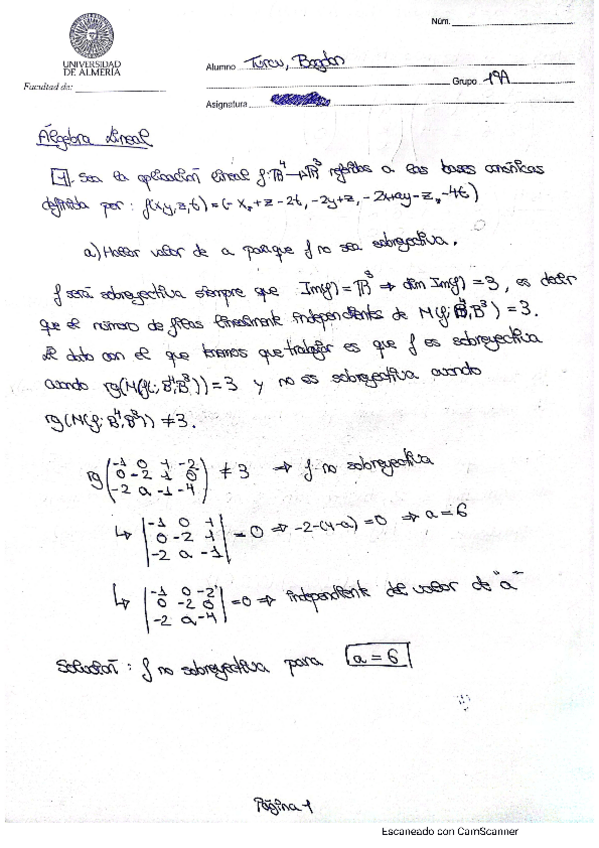 Núm.
UNIVERSIDAD
DE ALMERÍA
Alumno Turcu, Bogdan
Facultad de:
Grupo 1ºA
Asignatura
Álgebra Lineal
1. Sea la aplicación lineal f:ℝ⁴→ℝ³ referidos a las bases canónicas
definida por: f(x,y,z,t)=(-x+z-2t, -2y+z, -2x+ay-z-4t)
a) Hallar valor de a para que f no sea sobreyectiva.
f será sobreyectiva siempre que Im(f)=ℝ³ ⇒ dim Im(f)=3, es decir
que el número de filas linealmente independientes de M(f;B⁴,B³)=3.
El dato con el que tenemos que trabajar es que f es sobreyectiva
cuando rg(M(f;B⁴,B³))=3 y no es sobreyectiva cuando
rg(M(f;B⁴,B³))≠3.
rg(-1 0 1 -2
0 -2 1 0
-2 a -1 -4) ≠ 3 ⇒ f no sobreyectiva
↳ |-1 0 1
0 -2 1
-2 a -1| = 0 ⇒ -2-(4-a)=0 ⇒ a=6
↳ |-1 0 -2
0 -2 0
-2 a -4| = 0 ⇒ independiente del valor de "a"
Solución: f no sobreyectiva para a=6
Página 1
Escaneado con CamScanner